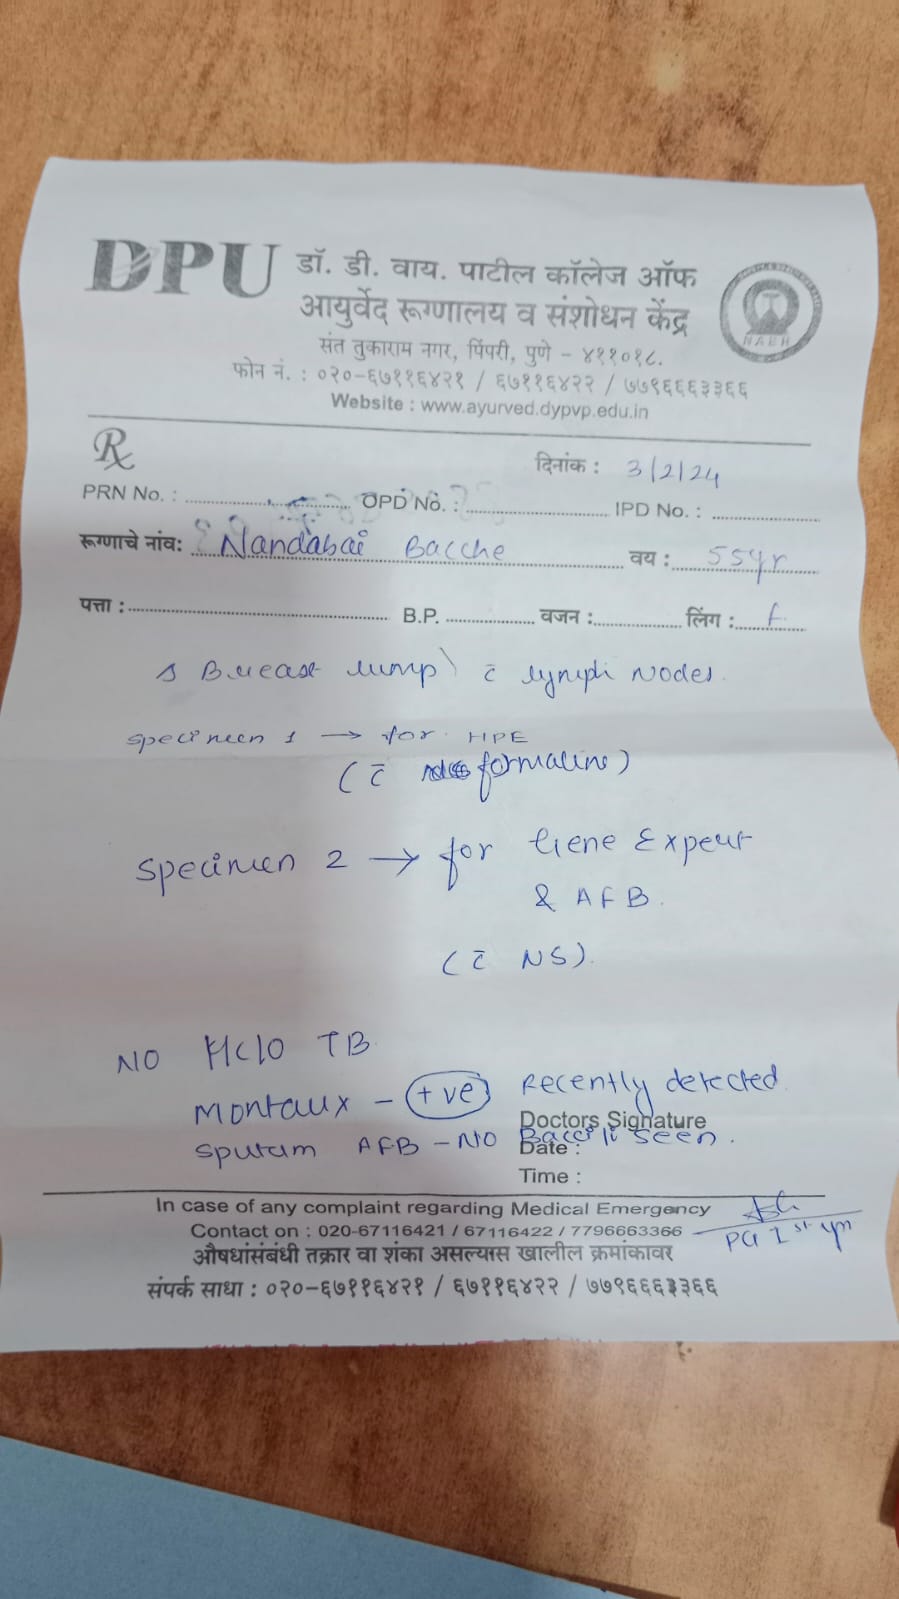 DPU
डॉ. डी. वाय. पाटील कॉलेज ऑफ
आयुर्वेद रूग्णालय व संशोधन केंद्र
संत तुकाराम नगर, पिंपरी, पुणे - ४११०१८.
फोन नं. : ०२०-६७११६४२१ / ६७११६४२२ / ७७९६६६३३६६
Website : www.ayurved.dypvp.edu.in
NABH
Rx
दिनांक : 3/2/24
PRN No. : OPD No. : IPD No. :
रूग्णाचे नांव: Nandabai Bacche वय : 55yr
पत्ता : B.P. वजन : लिंग : F
Breast lump c̄ lymph nodes.
specimen 1 → for HPE
(c̄ formaline)
specimen 2 → for Gene Expert
& AFB.
(c̄ NS).
NO H/C/O TB
Montaux - +ve Recently detected.
Sputam AFB - NO Bacilli seen.
Doctors Signature
Date :
Time :
In case of any complaint regarding Medical Emergency
Contact on : 020-67116421 / 67116422 / 7796663366
PG 1st yr
औषधांसंबंधी तक्रार वा शंका असल्यास खालील क्रमांकावर
संपर्क साधा : ०२०-६७११६४२१ / ६७११६४२२ / ७७९६६६३३६६